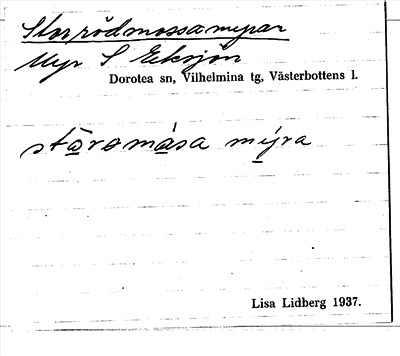 Storrödmossamyran
Myr S Eksjön
Dorotea sn, Vilhelmina tg, Västerbottens l.
stāromása mýra
Lisa Lidberg 1937.